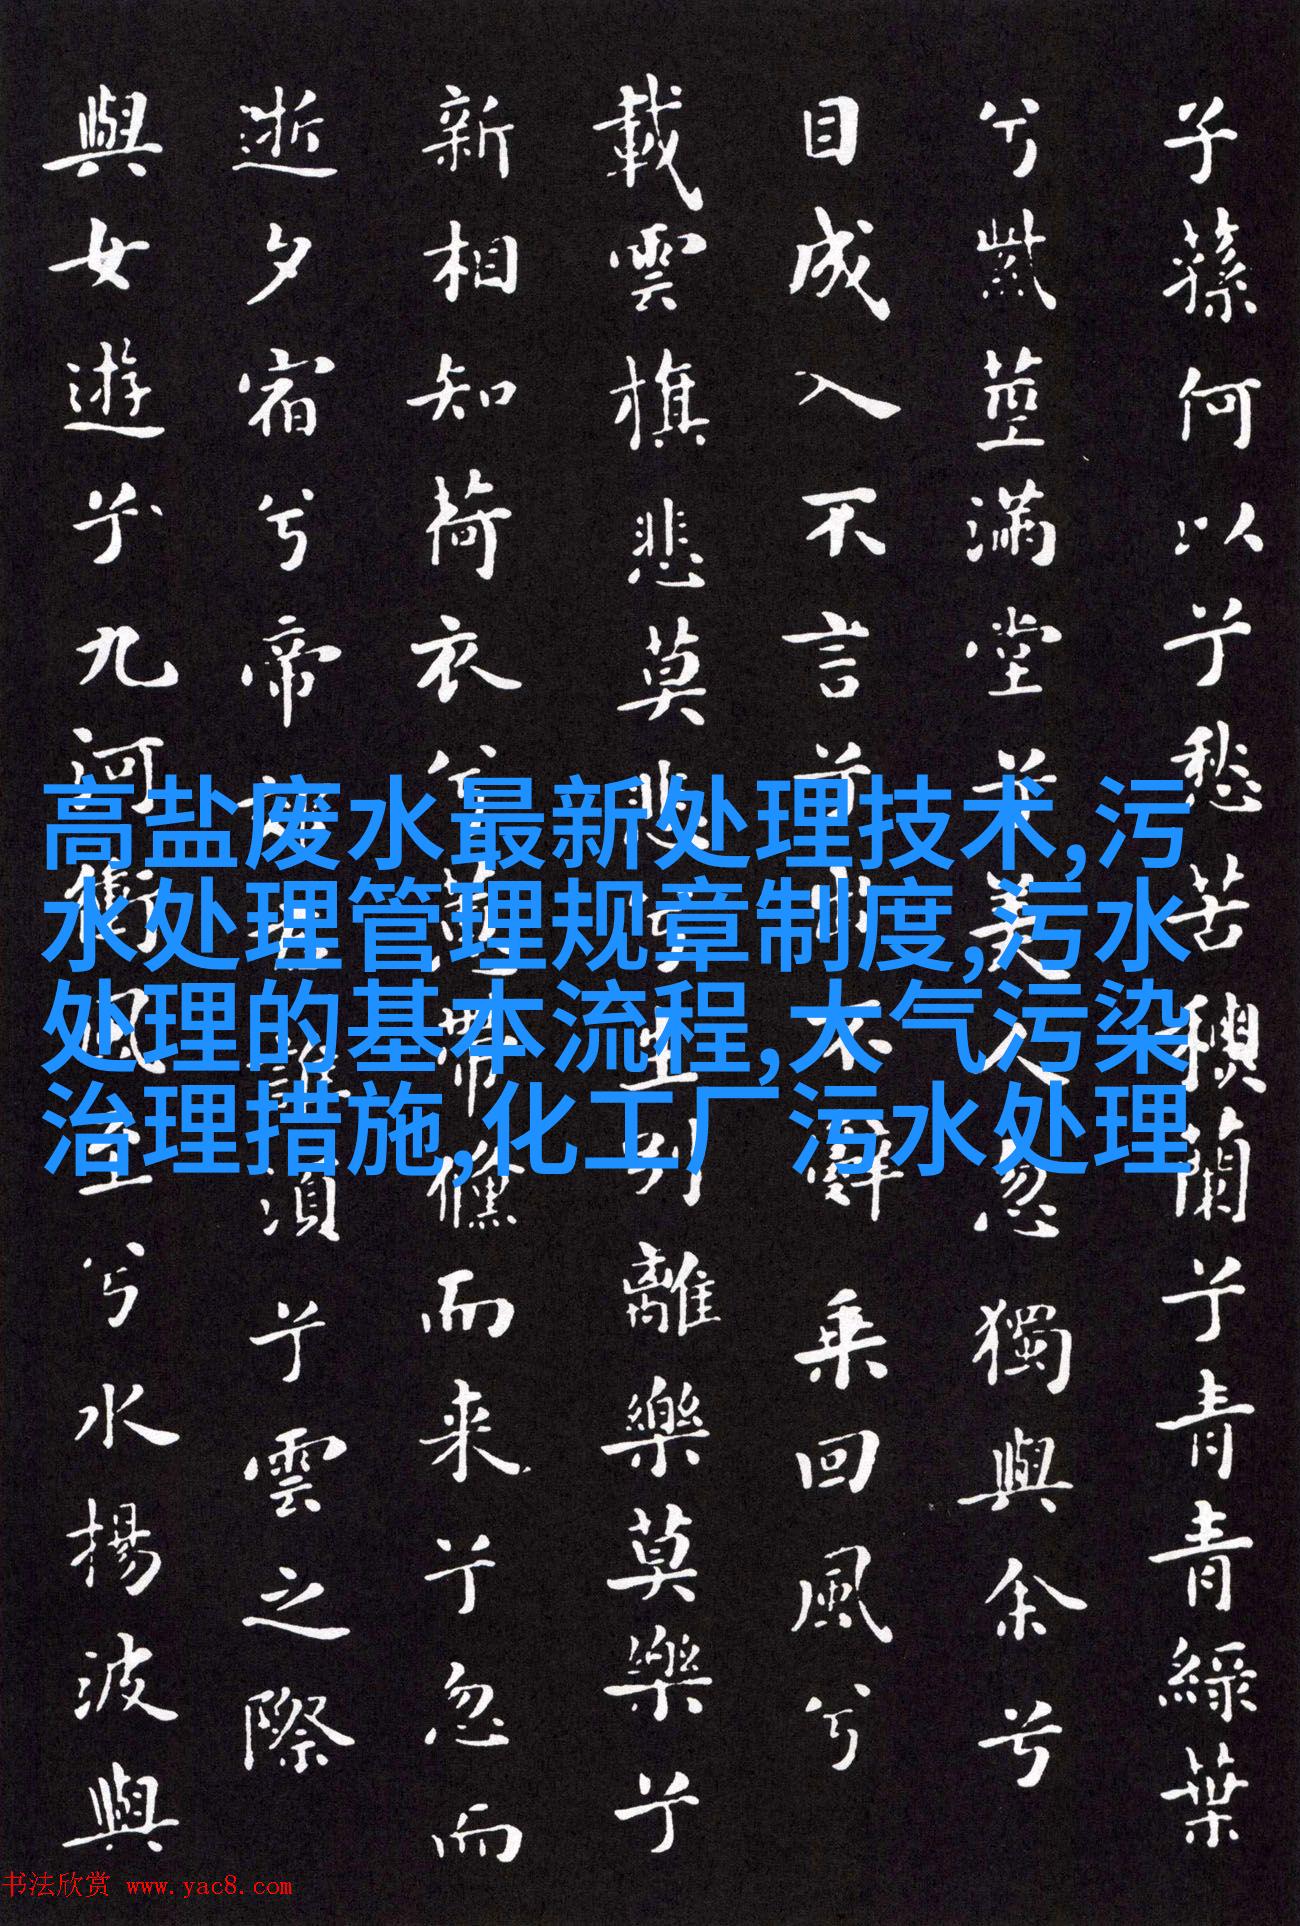 子蓀何以兮愁苦蘭兮青青綠葉
兮紫莖滿堂兮美人忽獨與余兮
目成入不言兮出不辭乘回風兮
載雲旗悲莫悲兮生別離樂莫樂兮
新相知荷衣兮蕙帶儵而来兮忽而
逝夕宿兮帝郊君誰須兮雲之際
與女遊兮九河衝風至兮水揚波與
高盐废水最新处理技术,污
水处理管理规章制度,污水
处理的基本流程,大气污染
治理措施,化工厂污水处理
书法欣赏 www.yac8.com